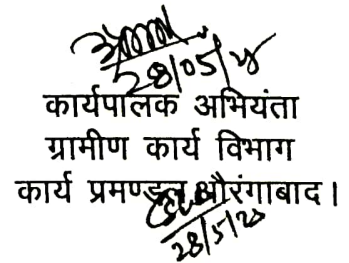 28/05/25
कार्यपालक अभियंता
ग्रामीण कार्य विभाग
कार्य प्रमण्डल औरंगाबाद।
28/5/25